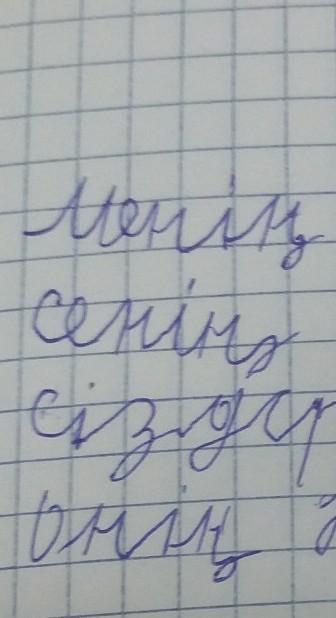 Менің
сенің
сіздер
онің